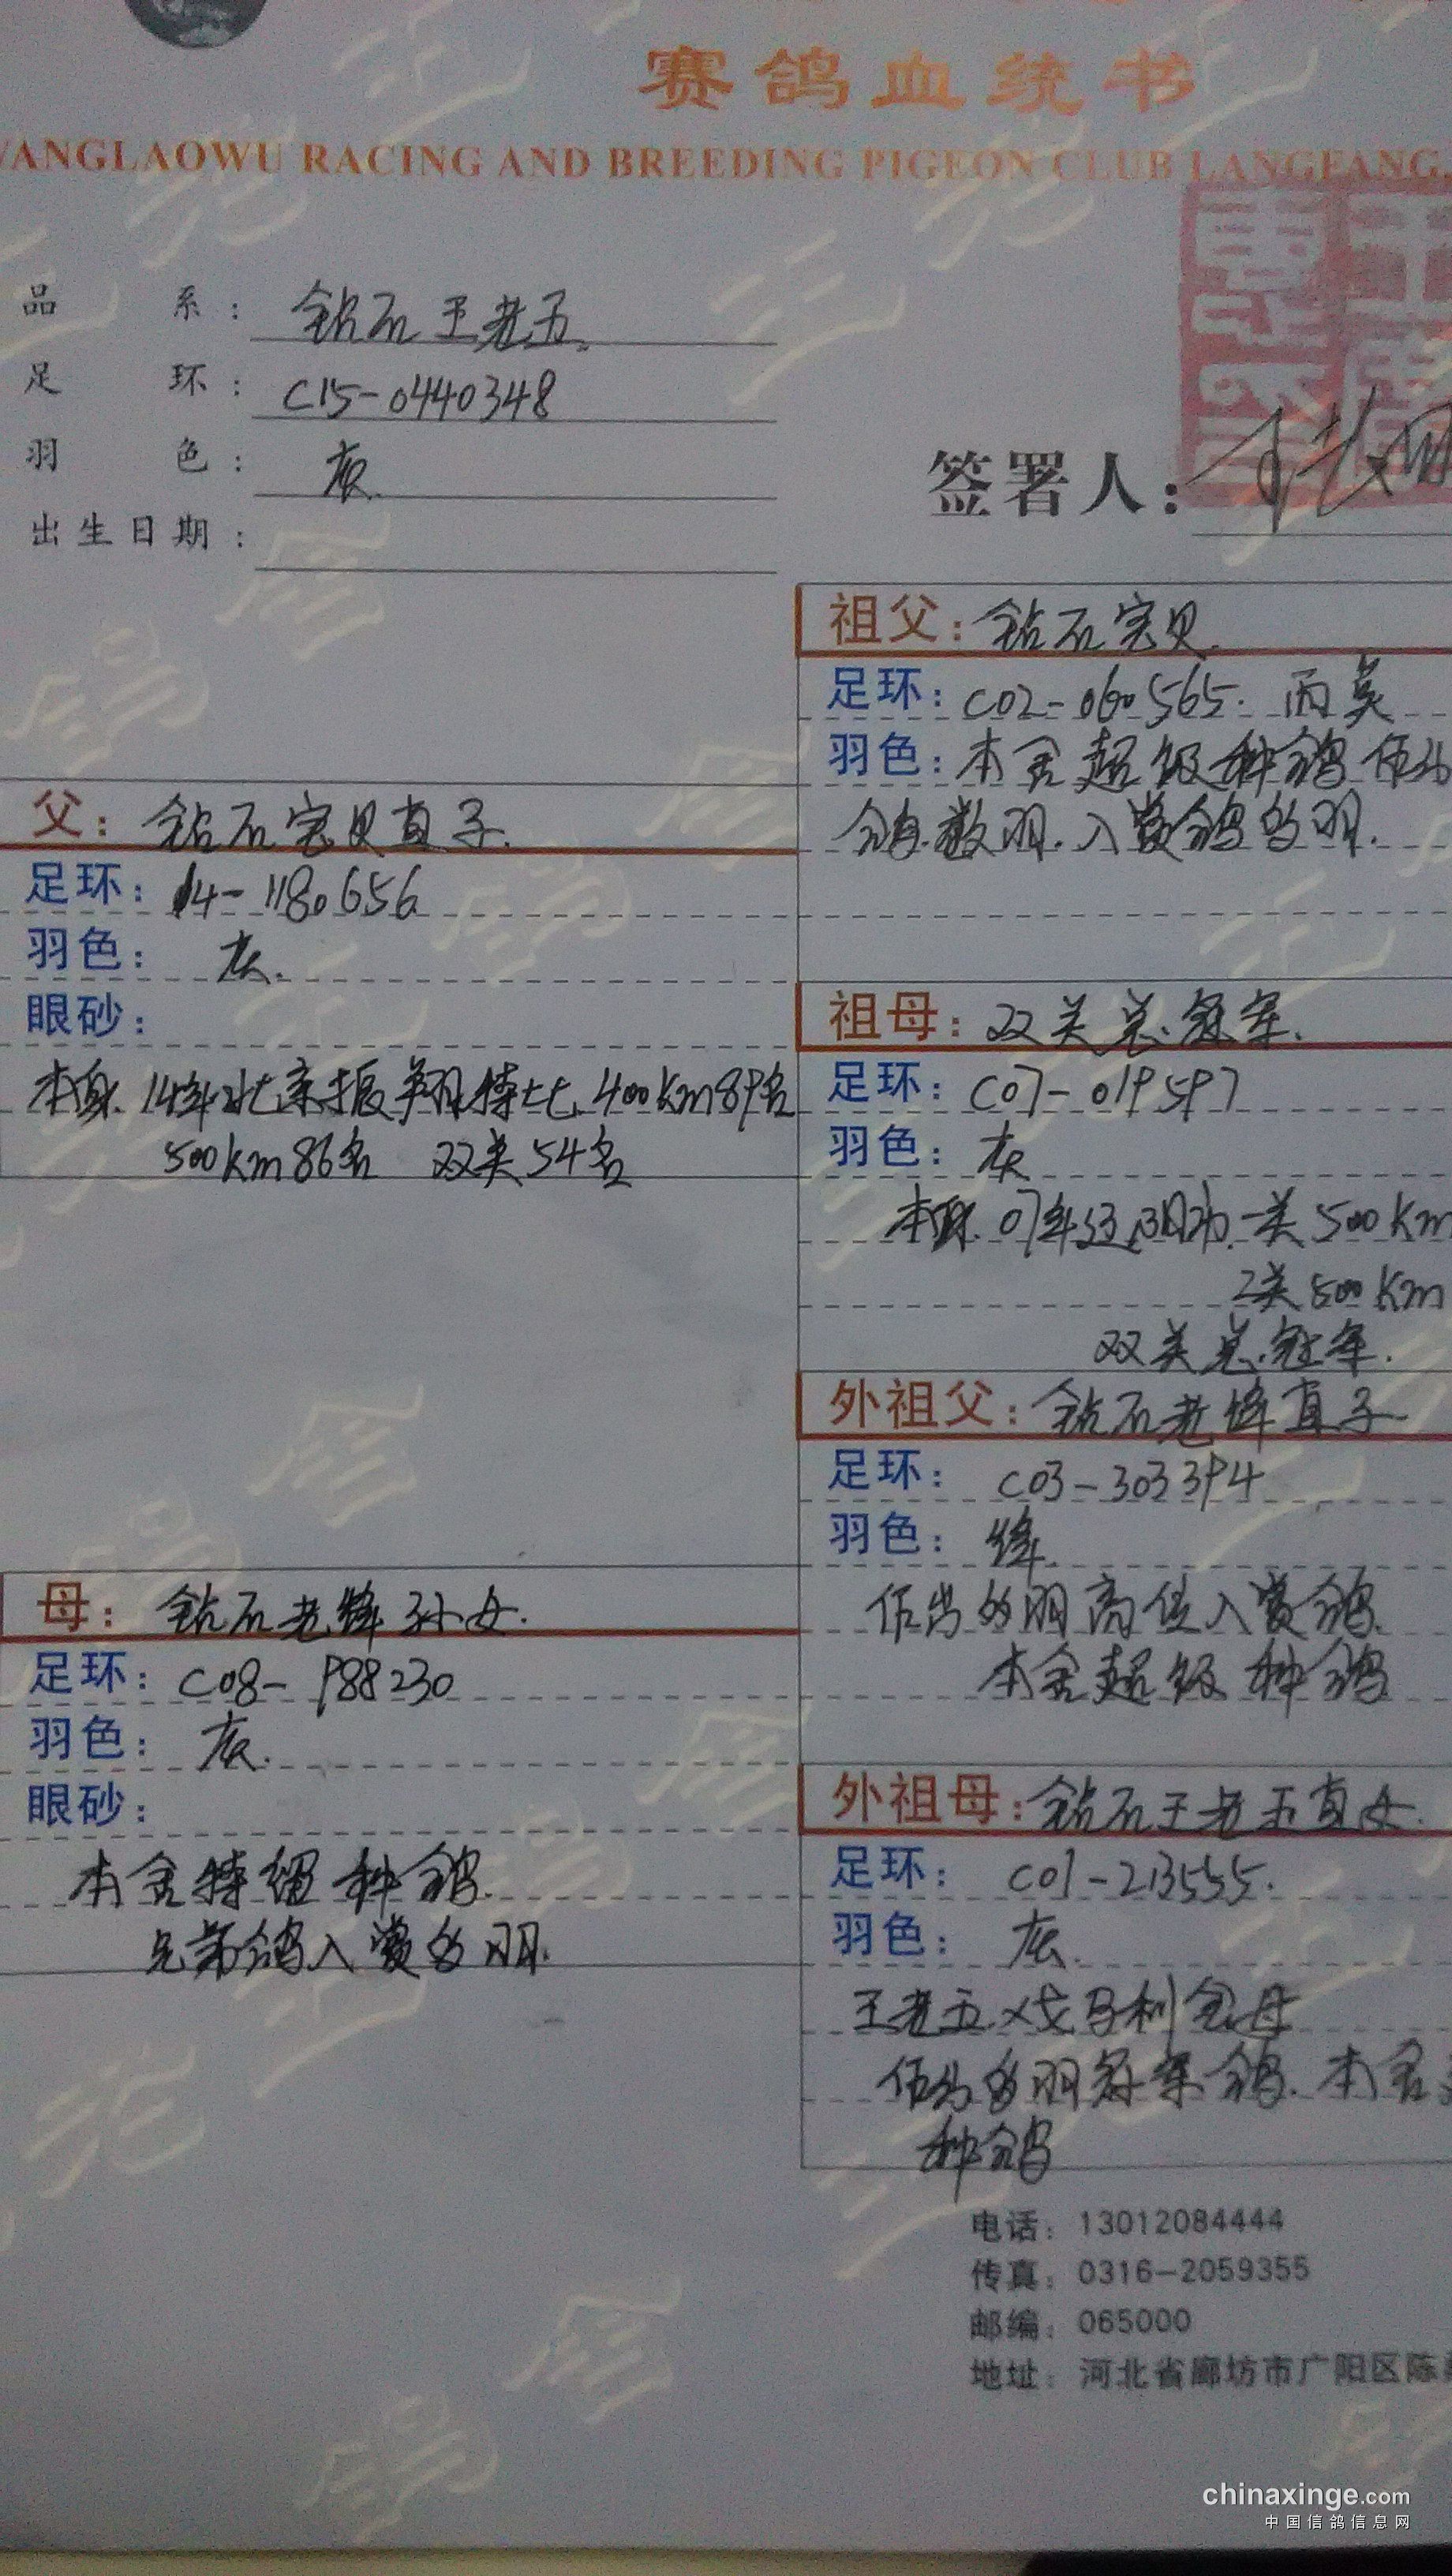 赛鸽血统书
WANGLAOWU RACING AND BREEDING PIGEON CLUB LANGFANG.
品系：钻石王老五
足环：C15-0440348
羽色：灰
出生日期：
签署人：
父：钻石宝贝直子
足环：14-1180656
羽色：灰
眼砂：
本身14年北京振翔特比400km89名
500km86名 双关54名
母：钻石老绛孙女
足环：C08-988230
羽色：灰
眼砂：
本舍特级种鸽
兄弟鸽入赏多羽
祖父：钻石宝贝
足环：C02-060565
羽色：本舍超级种鸽 作出
数羽.入赏鸽多羽.
祖母：双关总冠军.
足环：C07-019597
羽色：灰
07年 一关500Km
2关500Km
双关总冠军.
外祖父：钻石老绛直子
足环：C03-303394
羽色：绛
作出多羽高位入赏鸽
本舍超级种鸽
外祖母：钻石王老五直女
足环：C01-213555.
羽色：灰
王老五x戈马利金母
作出多羽冠军鸽.本舍
种鸽
电话：13012084444
传真：0316-2059355
邮编：065000
地址：河北省廊坊市广阳区陈
chinaxinge.com
中国信鸽信息网